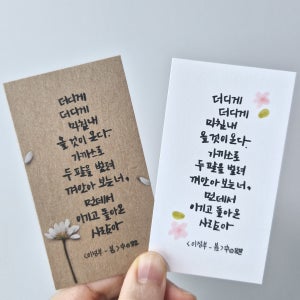 더디게
더디게
마침내
올 것이 온다
가까스로
두 팔을 벌려
껴안아 보는 너,
먼데서
이기고 돌아온
사람아
<이성부-봄>中에서
더디게
더디게
마침내
올 것이 온다
가까스로
두 팔을 벌려
껴안아 보는 너,
먼데서
이기고 돌아온
사람아
<이성부-봄>中에서